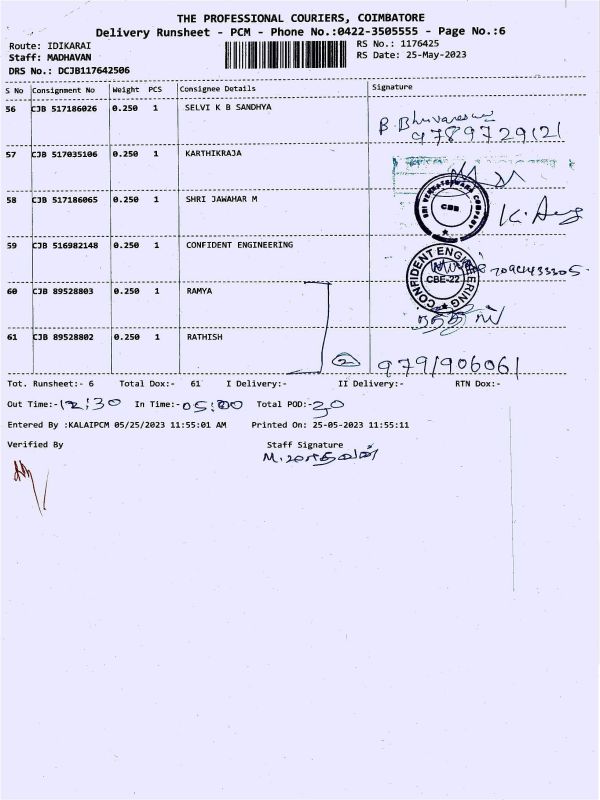 THE PROFESSIONAL COURIERS, COIMBATORE
Delivery Runsheet - PCM - Phone No.:0422-3505555 - Page No.:6
Route: IDIKARAI
RS No.: 1176425
Staff: MADHAVAN
RS Date: 25-May-2023
DRS No.: DCJB117642506
S No Consignment No Weight PCS Consignee Details Signature
56 CJB 517186026 0.250 1 SELVI K B SANDHYA
B. Bhuvaneswari
9789729121
57 CJB 517035106 0.250 1 KARTHIKRAJA
58 CJB 517186065 0.250 1 SHRI JAWAHAR M
SRI VENKATESWARA COMPANY
CBE
59 CJB 516982148 0.250 1 CONFIDENT ENGINEERING
CONFIDENT ENGINEERING
CBE-22
60 CJB 89528803 0.250 1 RAMYA
61 CJB 89528802 0.250 1 RATHISH
2
9791906061
Tot. Runsheet:- 6 Total Dox:- 61 I Delivery:- II Delivery:- RTN Dox:-
Out Time:-12:30 In Time:-05:00 Total POD:-20
Entered By :KALAIPCM 05/25/2023 11:55:01 AM Printed On: 25-05-2023 11:55:11
Verified By Staff Signature
M. மாதவன்